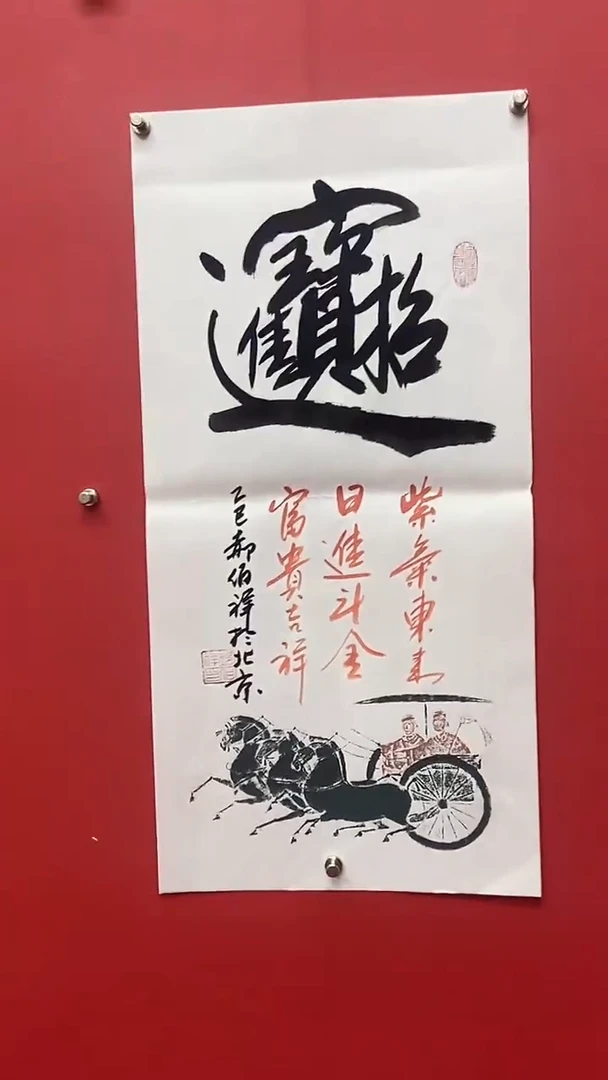 招財進寶
紫氣東來
日進斗金
富貴吉祥
乙巳郝伯祥於北京